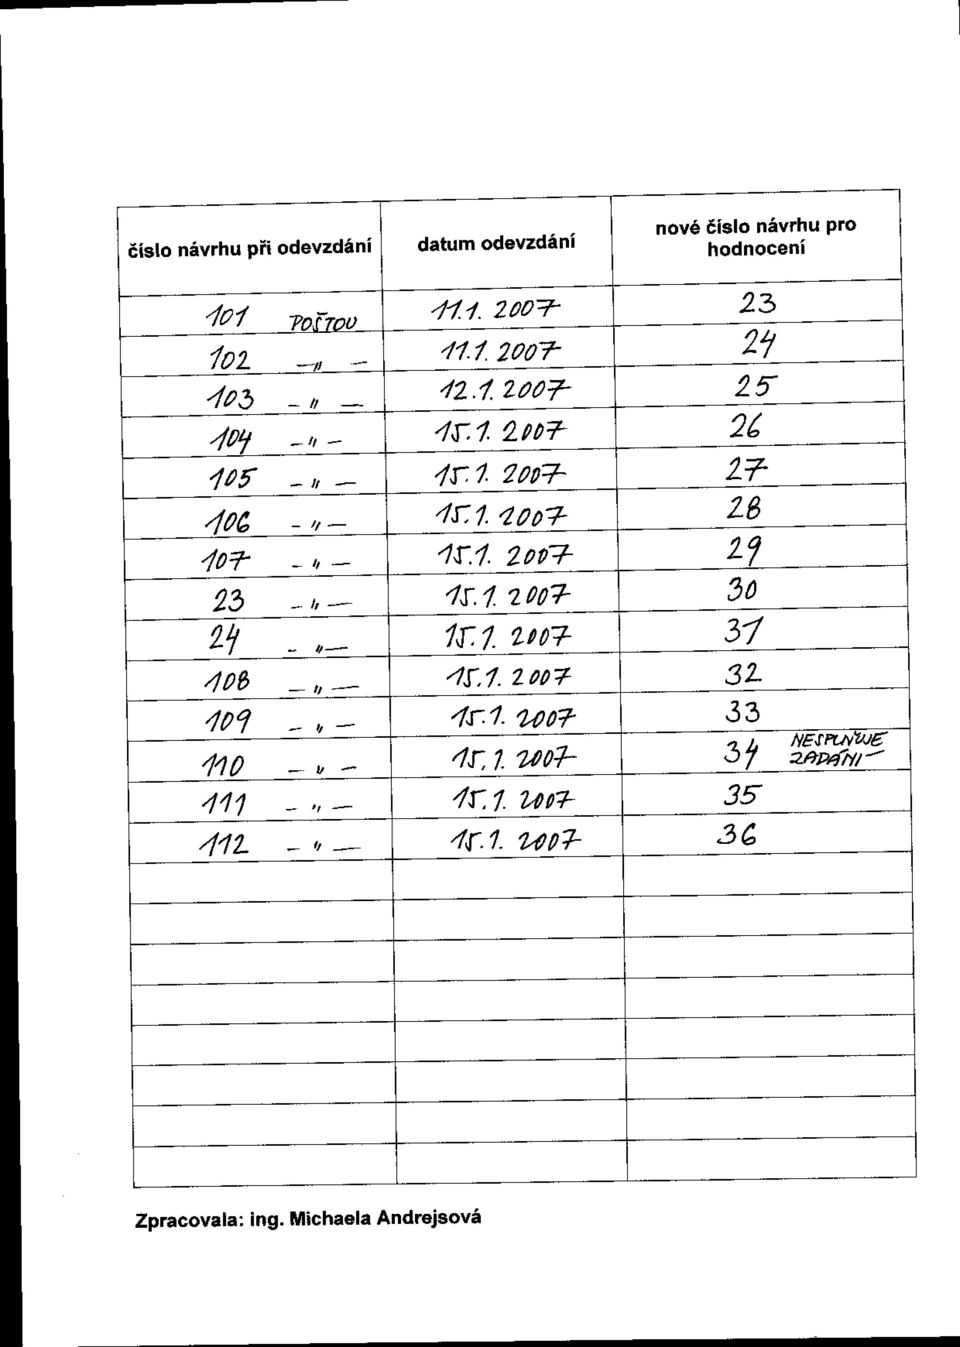 číslo návrhu při odevzdání datum odevzdání nové číslo návrhu pro hodnocení
101 POŠTOU 11.1. 2007 23
102 –〃– 11.1. 2007 24
103 –〃– 12.1. 2007 25
104 –〃– 15.1. 2007 26
105 –〃– 15.1. 2007 27
106 –〃– 15.1. 2007 28
107 –〃– 15.1. 2007 29
23 –〃– 15.1. 2007 30
24 –〃– 15.1. 2007 31
108 –〃– 15.1. 2007 32
109 –〃– 15.1. 2007 33
110 –〃– 15.1. 2007 34 NESPLŇUJE ZADÁNÍ
111 –〃– 15.1. 2007 35
112 –〃– 15.1. 2007 36
Zpracovala: ing. Michaela Andrejsová